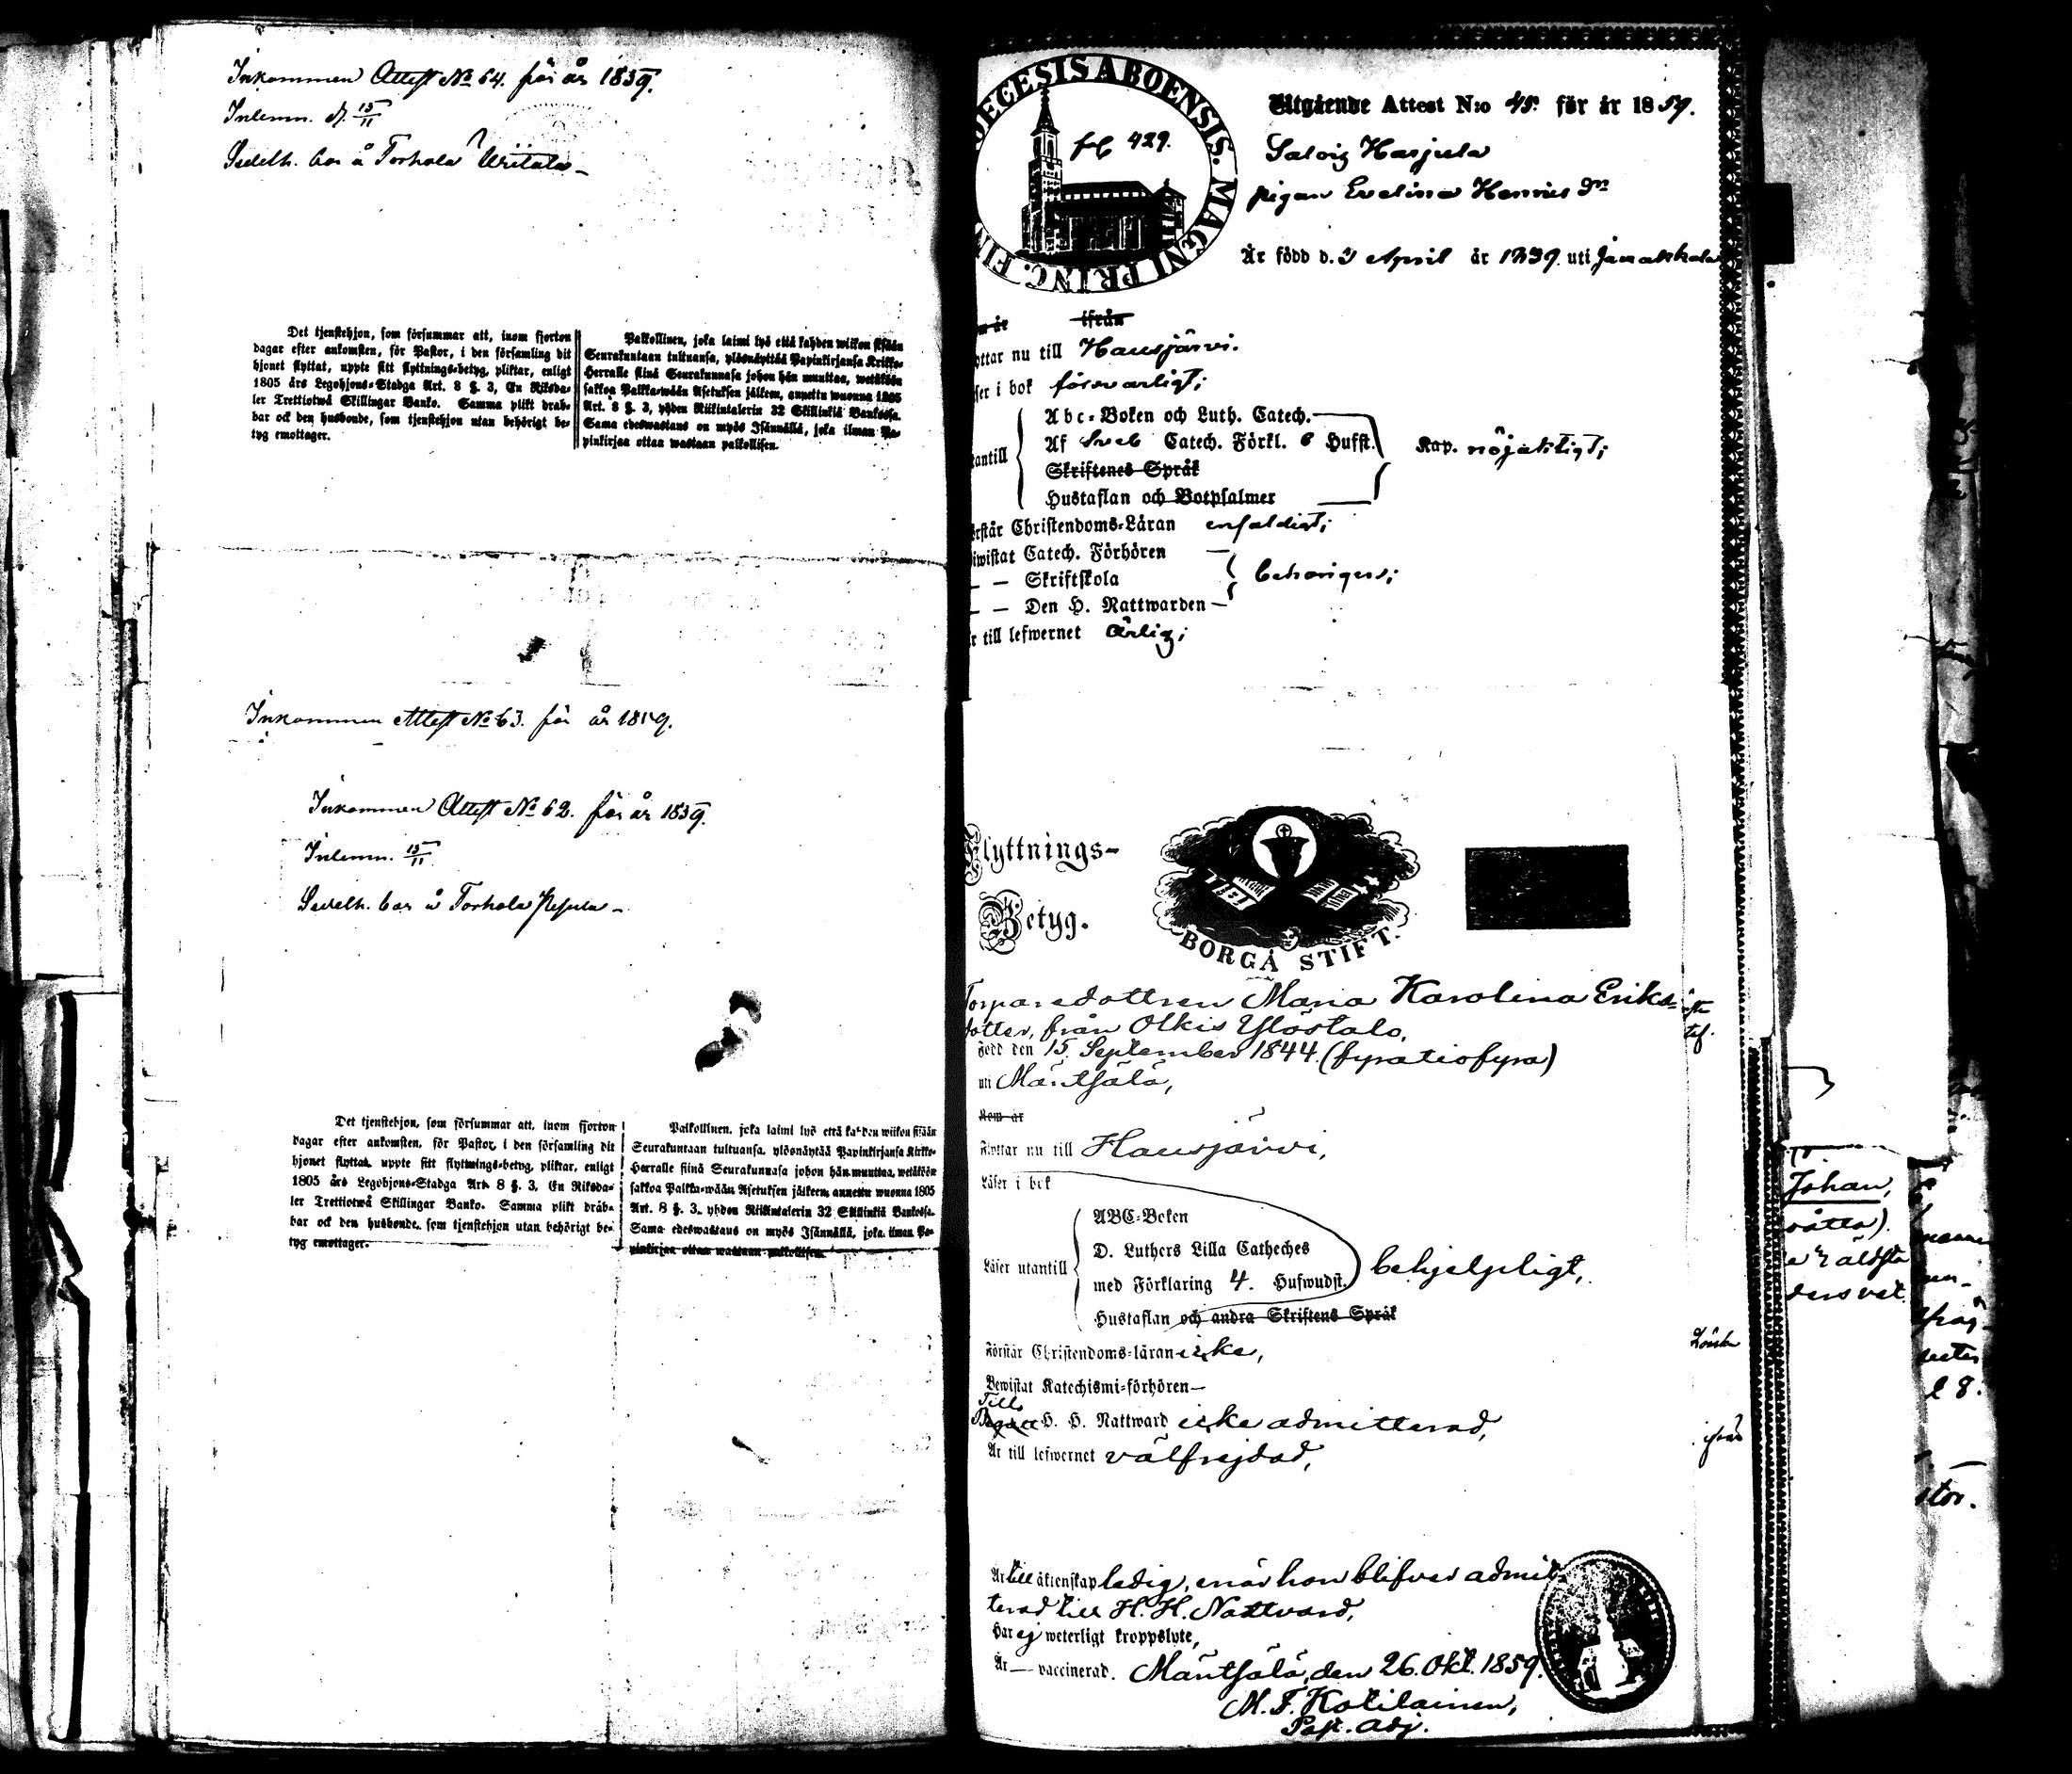 Inkommen Attest No 64. för år 1859.
Inlemn. d. 15/11
Sedelh. bor å Torhola
Det tjenstehjon, som försummar att, inom fjorton
dagar efter ankomsten, för Pastor, i den församling dit
hjonet flyttat, uppte sitt flyttnings-betyg, pliktar, enligt
1805 års Legohjons-Stadga Art. 8 §. 3, En Riksda-
ler Trettiotwå Skillingar Banko. Samma plikt dräb-
bar ock den husbonde, som tjenstehjon utan behörigt be-
tyg emottager.
Palkollinen, joka laimi lyö että kahden wiikon sisään
Seurakuntaan tultuansa, ylösnäyttää Papinkirjansa Kirkko-
Herralle siinä Seurakunnasa johon hän muuttaa, wetäköön
sakkoa Palkka-wään Asetuksen jälkeen, annettu wuonna 1805
Art. 8 §. 3, yhden Riikintalerin 32 Skillinkiä Bankossa.
Sama edeswastaus on myös Isännällä, joka ilman Pa-
pinkirjaa ottaa wastaan palkollisen.
Inkommen Attest No 63. för år 1859.
Inkommen Attest No 62. för år 1859.
Inlemn. 15/11
Sedelh. bor å Torhola
Det tjenstehjon, som försummar att, inom fjorton
dagar efter ankomsten, för Pastor, i den församling dit
hjonet flyttat, uppte sitt flyttnings-betyg, pliktar, enligt
1805 års Legohjons-Stadga Art. 8 §. 3, En Riksda-
ler Trettiotwå Skillingar Banko. Samma plikt dräb-
bar ock den husbonde, som tjenstehjon utan behörigt be-
tyg emottager.
Palkollinen, joka laimi lyö että kahden wiikon sisään
Seurakuntaan tultuansa, ylösnäyttää Papinkirjansa Kirkko-
Herralle siinä Seurakunnasa johon hän muuttaa, wetäköön
sakkoa Palkka-wään Asetuksen jälkeen, annettu wuonna 1805
Art. 8 §. 3, yhden Riikintalerin 32 Skillinkiä Bankossa.
Sama edeswastaus on myös Isännällä, joka ilman Pa-
pinkirjaa ottaa wastaan palkollisen.
DIOECESIS ABOENSIS. MAGNI PRINC. FIN
429.
Utgående Attest N:o 45. för år 1859.
Harjula
pigan Evelina Henrics dr
Är född d. 3 April år 1839. uti Janakkala
ifrån
flyttar nu till Hausjärvi.
Läser i bok försvarligt;
utantill
Abc-Boken och Luth. Catech.
Af Sveb Catech. Förkl. 6 Hufst.
Skriftenes Språk
Hustaflan och Botpsalmer
Kap. nöjaktigt;
Förstår Christendoms-Läran enfaldigt;
Biwistat Catech. Förhören
— — Skriftskola
— — Den H. Nattwarden
behörigen;
Är till lefwernet ärlig;
Flyttnings-
Betyg.
BORGÅ STIFT.
Torparedottren Maria Karolina Eriks-
dotter, från Olkis Ylöstalo,
Född den 15. September 1844. (fyratiofyra)
uti Mäntsälä,
Kom år
Flyttar nu till Hausjärvi,
Läser i bok
Läser utantill
ABC-Boken
D. Luthers Lilla Catheches
med Förklaring 4. Hufwudst.
Hustaflan och andra Skriftens Språk
behjelpligt,
Förstår Christendoms-läran icke,
Bewistat Katechismi-förhören—
Till
Begått H. H. Nattward icke admitterad,
Är till lefwernet välfrejdad,
Är till äktenskap ledig, enär hon blifver admit-
terad till H. H. Nattvard,
Har ej weterligt kroppslyte,
Är — vaccinerad. Mäntsälä, den 26. Okt. 1859.
M. F. Kotilainen,
Past. adj.
Johan,